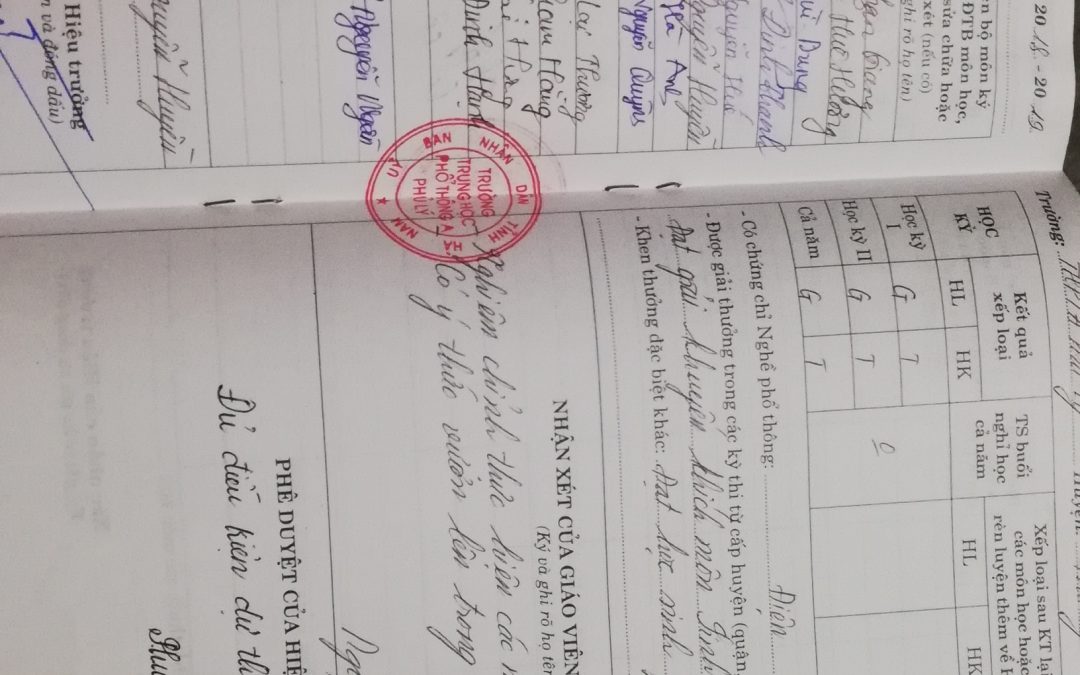 20 18 - 20 19
ên bộ môn ký
ĐTB môn học,
sửa chữa hoặc
xét (nếu có)
ghi rõ họ tên)
Giang
Huê Hường
Dung
Đinh Khanh
Nguyễn Huế
Nguyễn Huyền
Anh
Nguyễn Quỳnh
Lai Thương
Hoàng
Đinh Hạnh
Nguyễn Ngân
Nguyễn Huyền
Hiệu trưởng
và đóng dấu)
BAN NHÂN DÂN TỈNH HÀ NAM
TRƯỜNG
TRUNG HỌC
PHỔ THÔNG A
PHỦ LÝ
Trường:
HỌC
KỲ
Kết quả
xếp loại
TS buổi
nghỉ học
cả năm
Xếp loại sau KT lại
các môn học hoặc
rèn luyện thêm về
HL
HK
HL
HK
Học kỳ
I
G
T
0
Học kỳ II
G
T
Cả năm
G
T
- Có chứng chỉ Nghề phổ thông: Điện
- Được giải thưởng trong các kỳ thi từ cấp huyện (quận
đạt giải khuyến khích môn Sinh
- Khen thưởng đặc biệt khác: Đạt học sinh
NHẬN XÉT CỦA GIÁO VIÊN
(Ký và ghi rõ họ tên
Nghiêm chỉnh thực hiện các
Có ý thức vươn lên trong
PHÊ DUYỆT CỦA HIỆ
Đủ điều kiện dự th